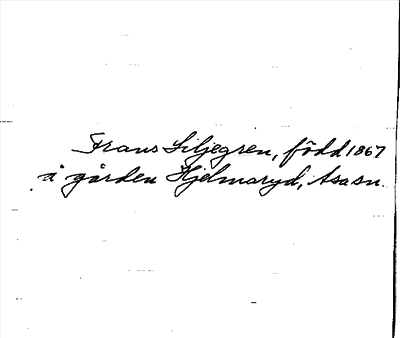 Frans Liljegren, född 1867
å gården Hjelmaryd, Asasn.